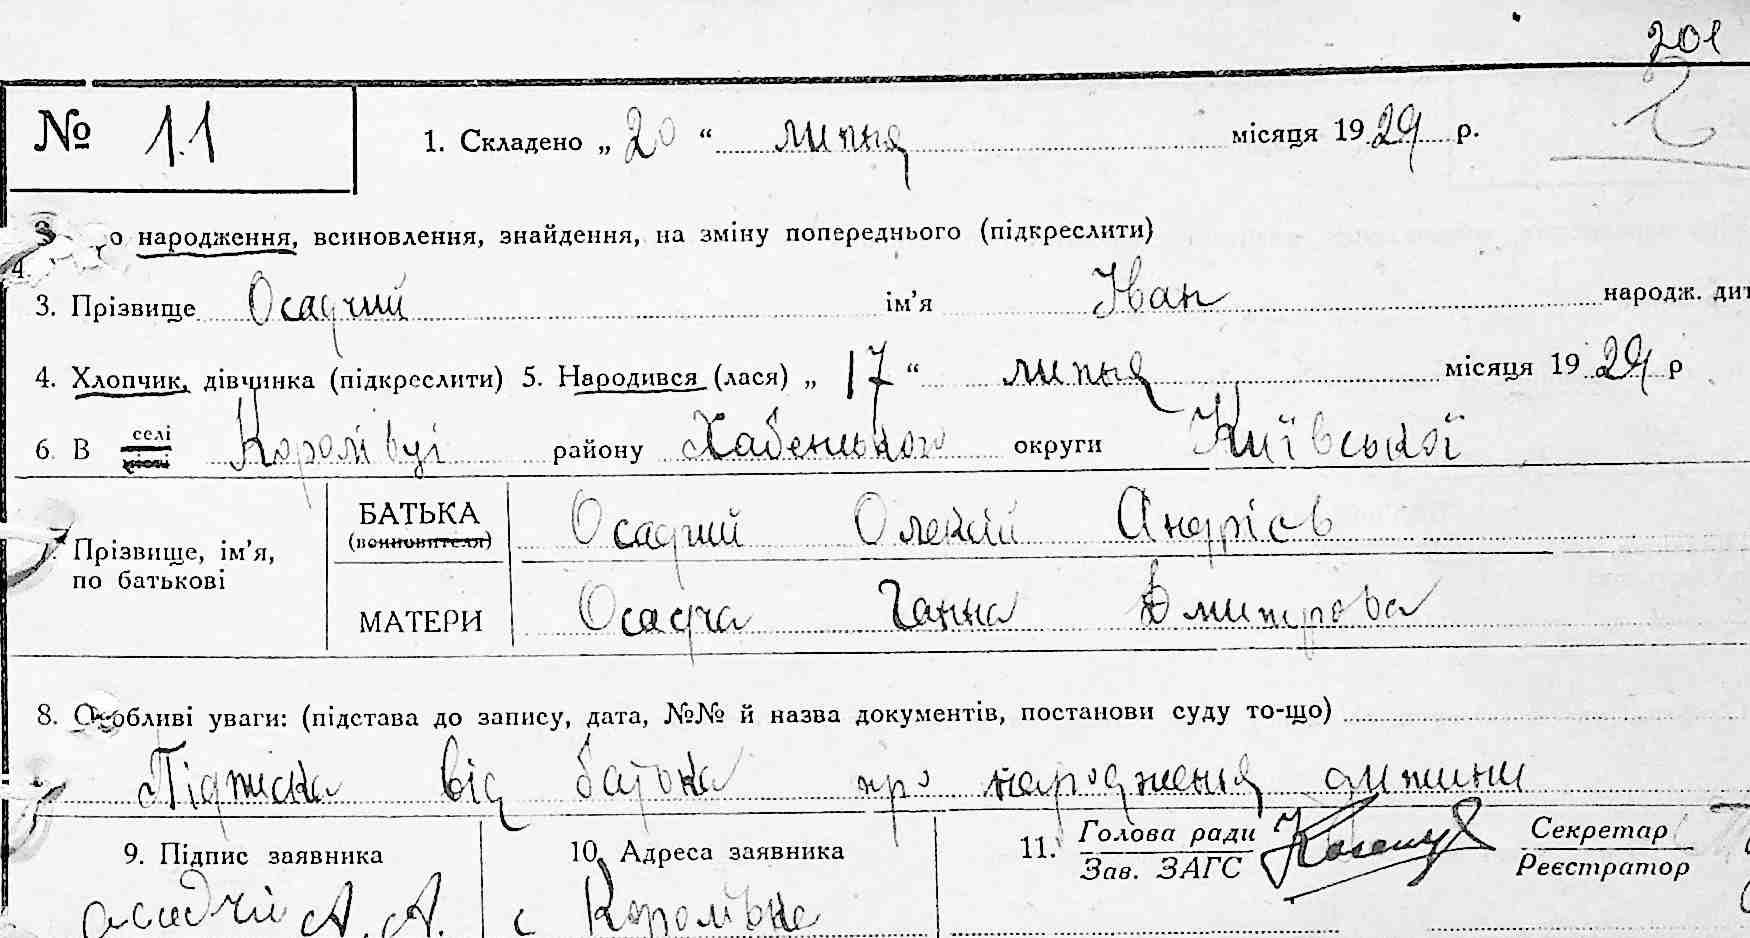 201
2
№ 11 1. Складено „20“ липня місяця 1929 р.
о народження, всиновлення, знайдення, на зміну попереднього (підкреслити)
4.
3. Прізвище Осадчий ім’я Іван народж. дит
4. Хлопчик, дівчинка (підкреслити) 5. Народився (лася) „17“ липня місяця 1929 р
6. В селі Королівці району Хабенського округи Київської
Прізвище, ім’я, по батькові
БАТЬКА Осадчий Олексій Андрієв
(всиновителя)
МАТЕРИ Осадча Ганна Дмитрова
8. Особливі уваги: (підстава до запису, дата, №№ й назва документів, постанови суду то-що)
Підписка від батька про народження дитини
9. Підпис заявника 10. Адреса заявника 11. Голова ради Секретар
Зав. ЗАГС Реєстратор
Осадчий А. А. с Королівка